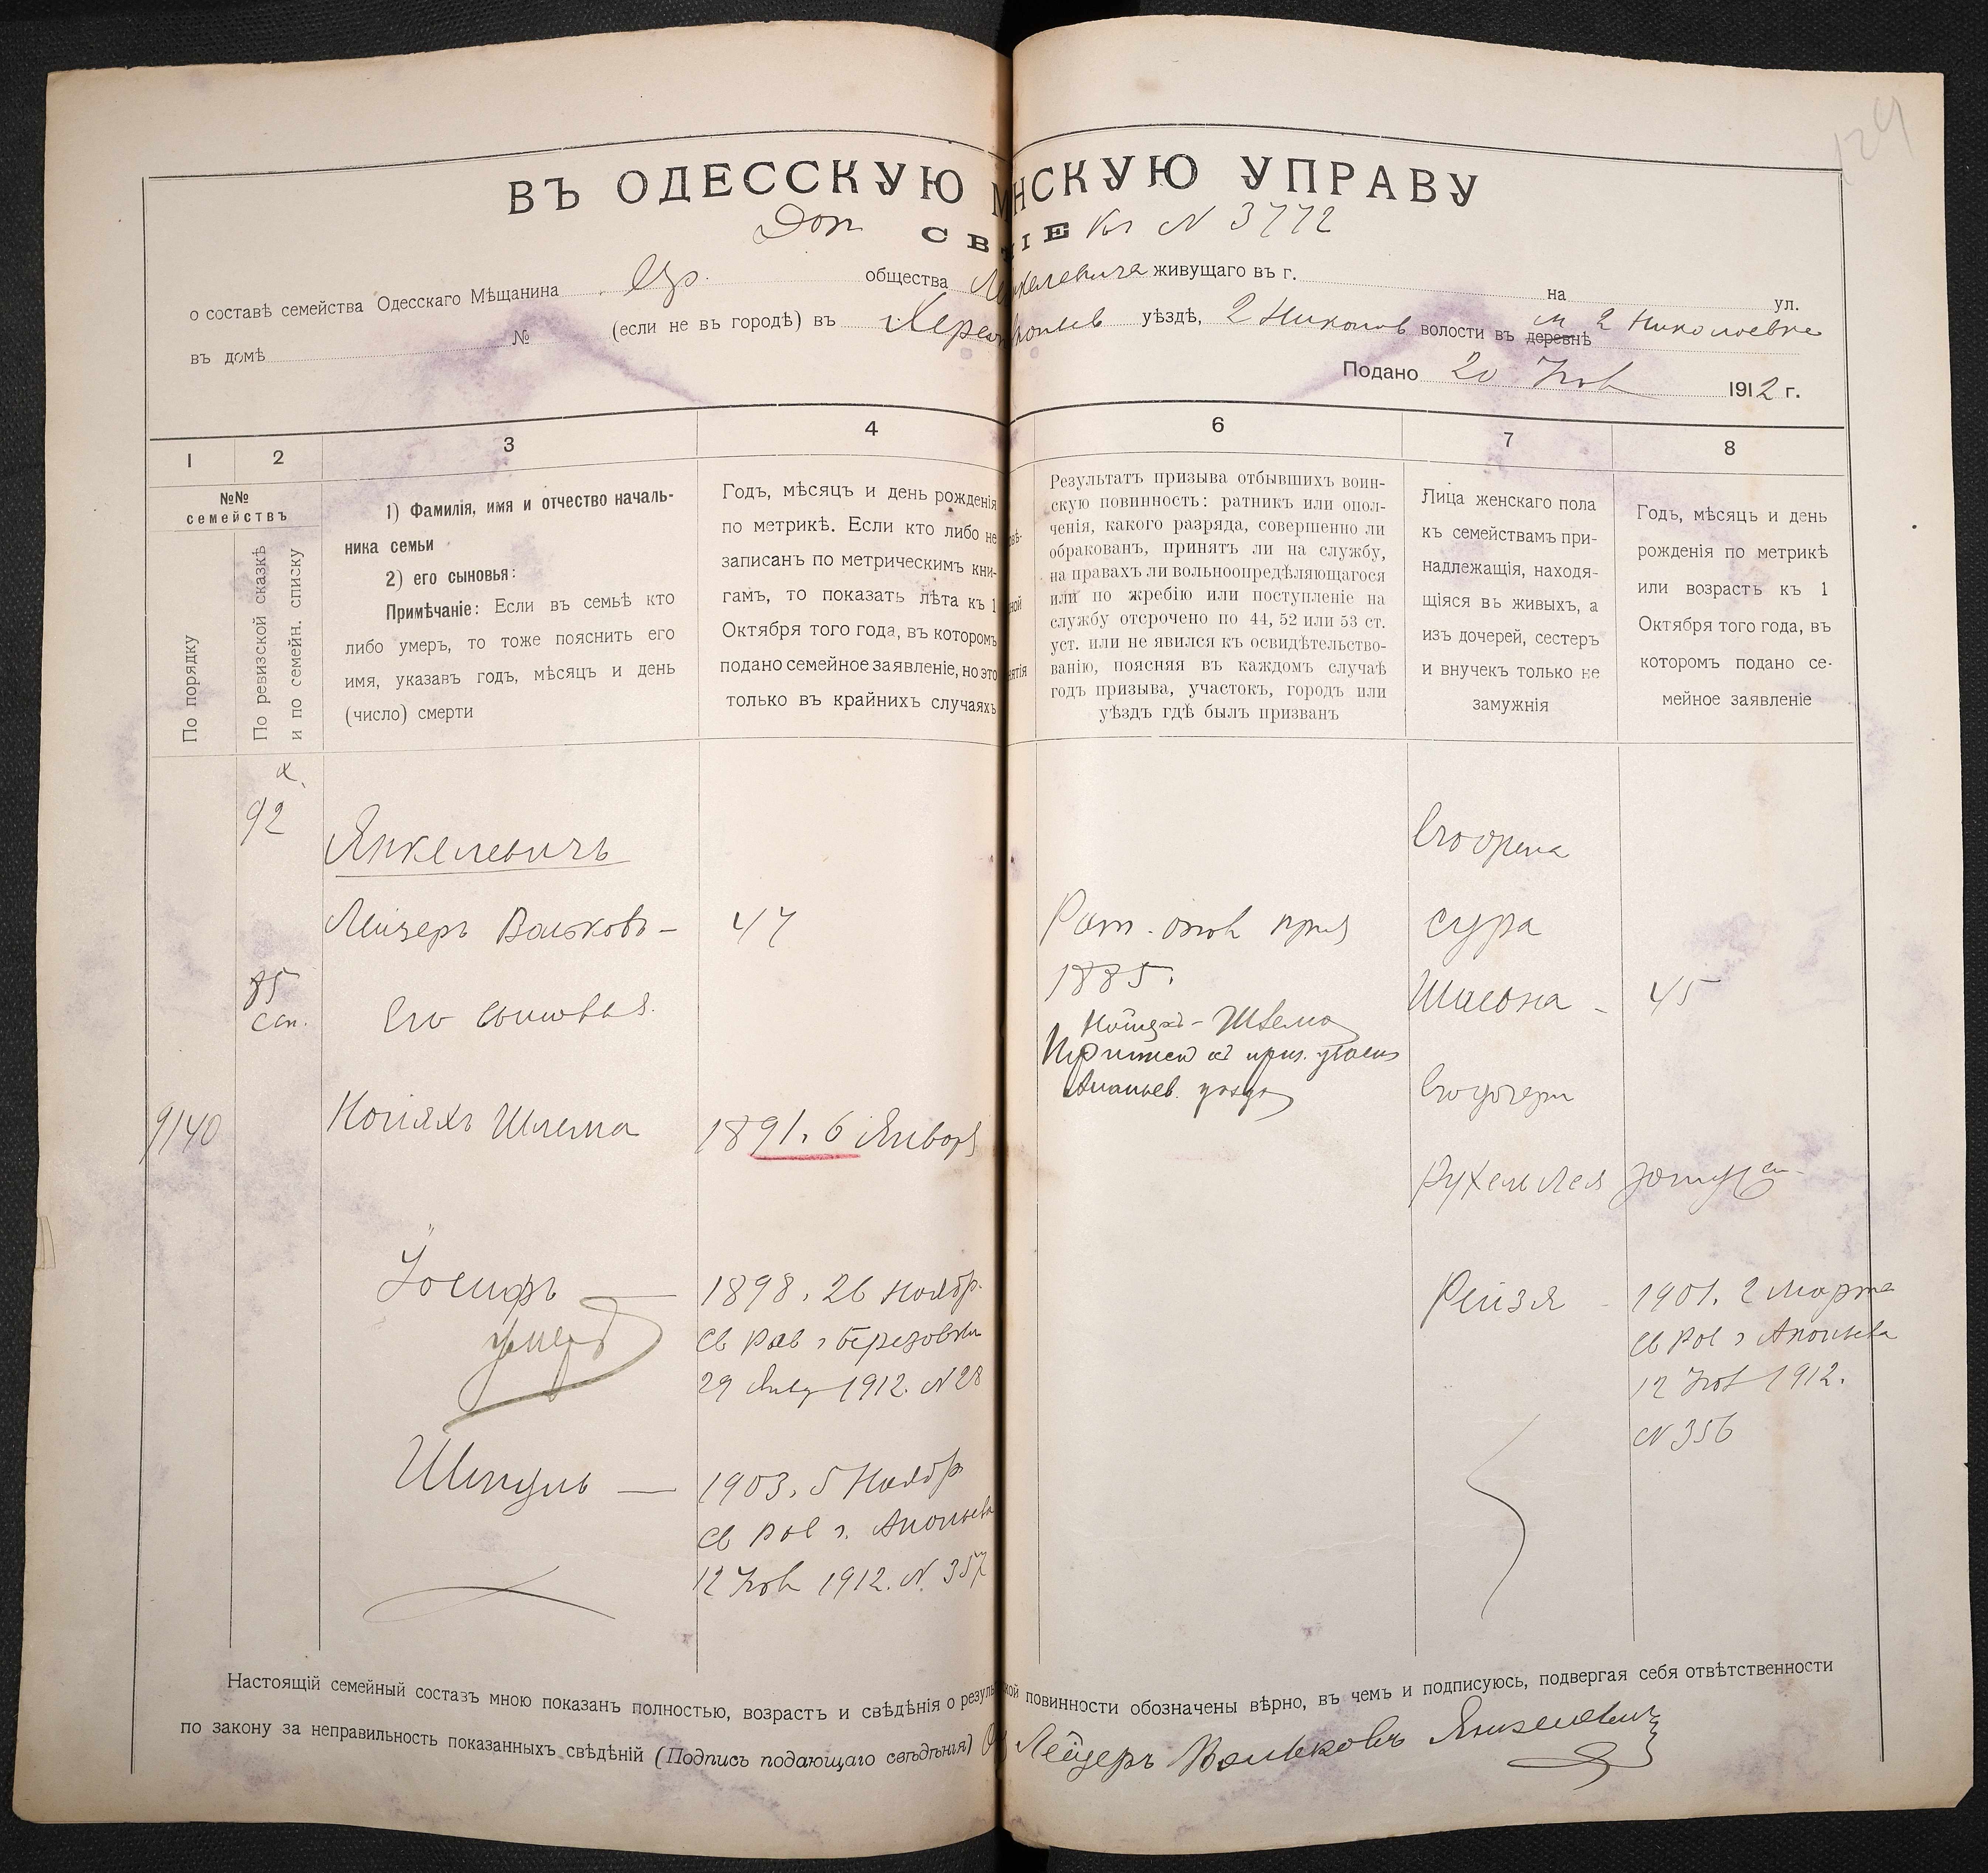 124
ВЪ ОДЕССКУЮ М НСКУЮ УПРАВУ
Доп СВ ІЕ къ N 3772
о составѣ семейства Одесскаго Мѣщанина Евр. общества Янкелевича живущаго въ г. на ул.
въ домѣ № (если не въ городѣ) въ уѣздѣ, 2 Николов волости въ деревнѣ м 2 Николоевке
Подано 20 1912 г.
1 2 3 4 6 7 8
№№
семействъ
По порядку
По ревизской сказкѣ
и по семейн. списку
1) Фамилія, имя и отчество началь-
ника семьи
2) его сыновья:
Примѣчаніе: Если въ семьѣ кто
либо умеръ, то тоже пояснить его
имя, указавъ годъ, мѣсяцъ и день
(число) смерти
Годъ, мѣсяцъ и день рожденія
по метрикѣ. Если кто либо не
записанъ по метрическимъ кни-
гамъ, то показать лѣта къ 1
Октября того года, въ которомъ
подано семейное заявленіе, но это
только въ крайнихъ случаяхъ
Результатъ призыва отбывшихъ воин-
скую повинность: ратникъ или опол-
ченія, какого разряда, совершенно ли
обракованъ, принятъ ли на службу,
на правахъ ли вольноопредѣляющагося
или по жребію или поступленіе на
службу отсрочено по 44, 52 или 53 ст.
уст. или не явился къ освидѣтельство-
ванію, поясняя въ каждомъ случаѣ
годъ призыва, участокъ, городъ или
уѣздъ гдѣ былъ призванъ
Лица женскаго пола
къ семействамъ при-
надлежащія, находя-
щіяся въ живыхъ, а
изъ дочерей, сестеръ
и внучекъ только не
замужнія
Годъ, мѣсяцъ и день
рожденія по метрикѣ
или возрастъ къ 1
Октября того года, въ
которомъ подано се-
мейное заявленіе
92
Янкелевичъ
Лейзеръ Вольковъ – 47
85
сем.
Его сыновья
9140 Шлема 1891. 6 Января
Іосифъ — 1898. 26 Ноябр.
умеръ
св рав г Березовки
29 Янв 1912. N 28
Шмуль — 1903. 5 Ноябр
св рав г. Ананьева
12 1912. N. 357
Рат. опол
1885.
Шлема
Ананьев. уезду
Его жена
Сура
Шлёма – 45
Его дочери
Рухель Лея замуж
Рейзя – 1901. 2 Марта
св рав г Ананьева
12 1912.
N 356
Настоящій семейный составъ мною показанъ полностью, возрастъ и свѣдѣнія о резуль кой повинности обозначены вѣрно, въ чемъ и подписуюсь, подвергая себя отвѣтственности
по закону за неправильность показанныхъ свѣдѣній (Подпись подающаго свѣдѣнія) Лейзеръ Вольковъ Янкелевичъ